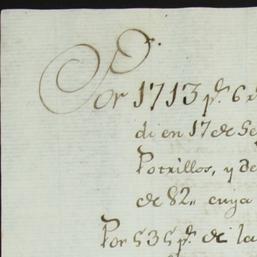 Por 1713 p.s 6 r
di en 17 de Se
Potrillos, y de
de 82,, cuya
Por 535 p.s de la